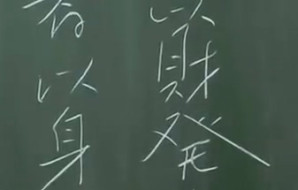 以財發
者以身